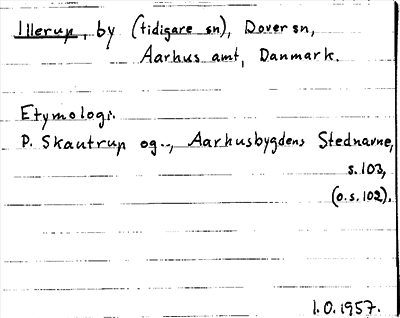 Illerup, by (tidigare sn), Dover sn,
Aarhus amt, Danmark.
Etymologi.
P. Skautrup og.., Aarhusbygdens Stednavne,
s. 103,
(o.s. 102).
I.O. 1957.